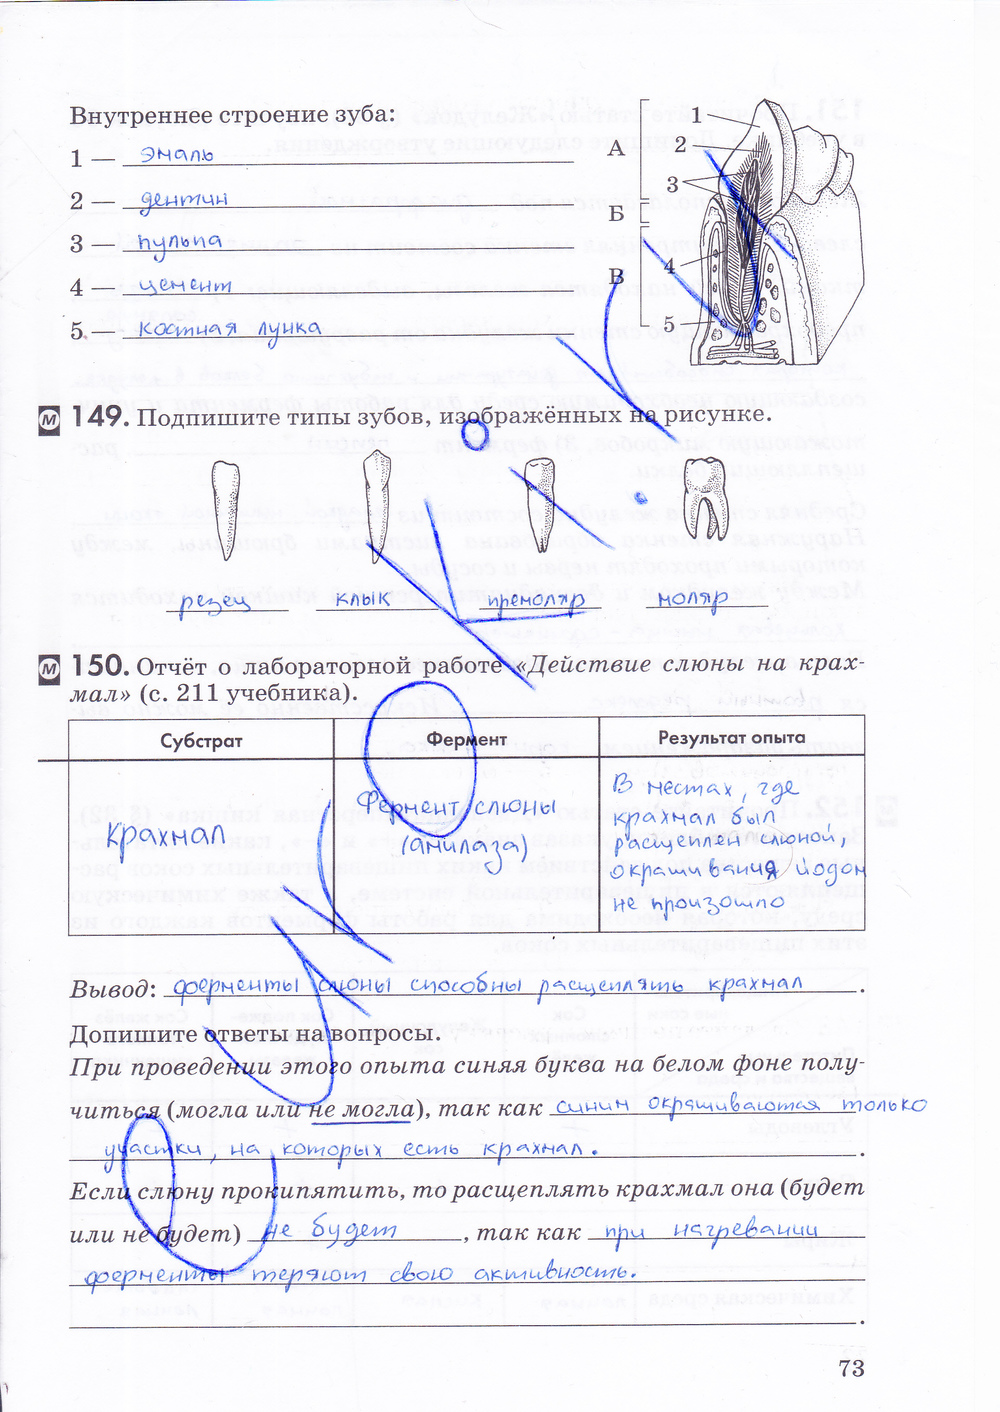 Внутреннее строение зуба:
1 — эмаль
2 — дентин
3 — пульпа
4 — цемент
5. костная лунка
А
Б
В
1
2
3
4
5
М 149. Подпишите типы зубов, изображённых на рисунке.
резец клык премоляр моляр
М 150. Отчёт о лабораторной работе «Действие слюны на крах-
мал» (с. 211 учебника).
Субстрат Фермент Результат опыта
Крахмал
Фермент слюны
(амилаза)
В местах, где
крахмал был
расщеплён слюной,
окрашивания йодом
не произошло
Вывод: ферменты слюны способны расщеплять крахмал.
Допишите ответы на вопросы.
При проведении этого опыта синяя буква на белом фоне полу-
читься (могла или не могла), так как синим окрашиваются только
участки, на которых есть крахмал.
Если слюну прокипятить, то расщеплять крахмал она (будет
или не будет) не будет, так как при нагревании
ферменты теряют свою активность.
73